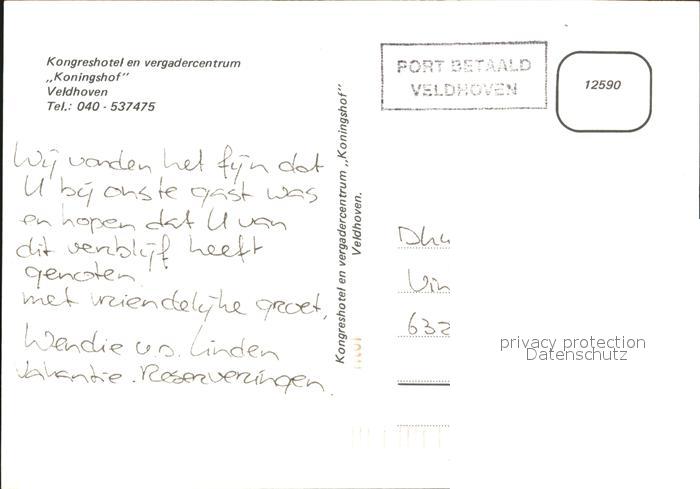 Kongreshotel en vergadercentrum
„Koningshof”
Veldhoven
Tel.: 040 - 537475
Wij vonden het fijn dat
U bij ons te gast was
en hopen dat U van
dit verblijf heeft
genoten.
met vriendelijke groet,
Wendie v.d. Linden
vakantie. Reserveringen.
Kongreshotel en vergadercentrum „Koningshof”
Veldhoven.
PORT BETAALD
VELDHOVEN
12590
Dhr
Vin
632
privacy protection
Datenschutz